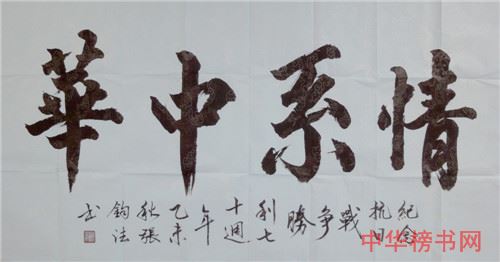 情系中華
紀念
抗日
戰
争
勝
利七
十週
年
乙未
秋張
鈞法
书
中华榜书网